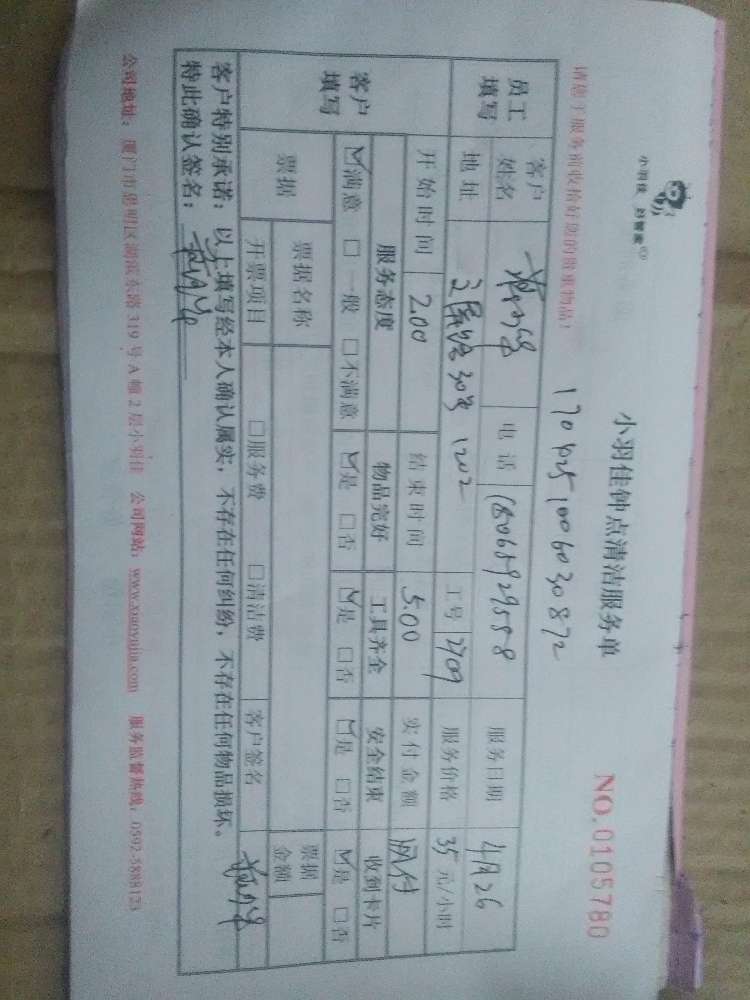 小羽佳 好管家
小羽佳钟点清洁服务单
NO.0105780
请您于服务前收拾好您的贵重物品!
1704251006030872
员工填写 客户姓名 电话 18065929558 服务日期 4月26
地址 30号1202 工号 2709 服务价格 35元/小时
客户填写 开始时间 2.00 结束时间 5.00 实付金额 网付
服务态度 物品完好 工具齐全 安全结束 收到卡片
☑满意 □一般 □不满意 ☑是 □否 ☑是 □否 ☑是 □否 ☑是 □否
票据 票据名称 票据金额
开票项目 □服务费 □清洁费 客户签名
客户特别承诺:以上填写经本人确认属实,不存在任何纠纷,不存在任何物品损坏。
特此确认签名:
公司地址:厦门市思明区湖滨东路319号A幢2层小羽佳 公司网站:www.xiaoyujia.com 服务监督热线:0592-5888123